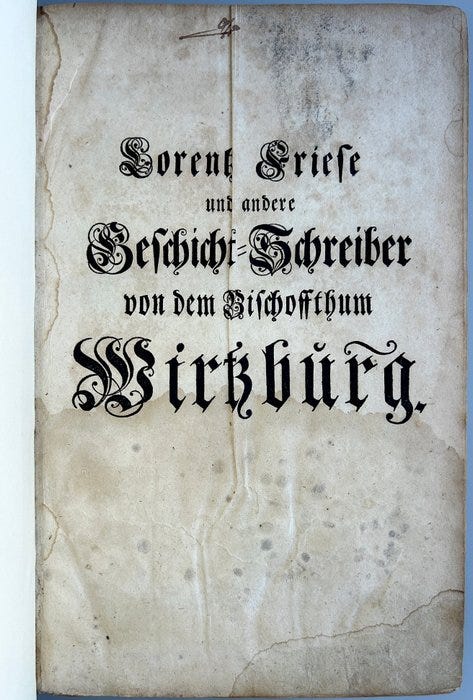 Lorentz Friese
und andere
Geschicht-Schreiber
von dem Bischoffthum
Wirtzburg.